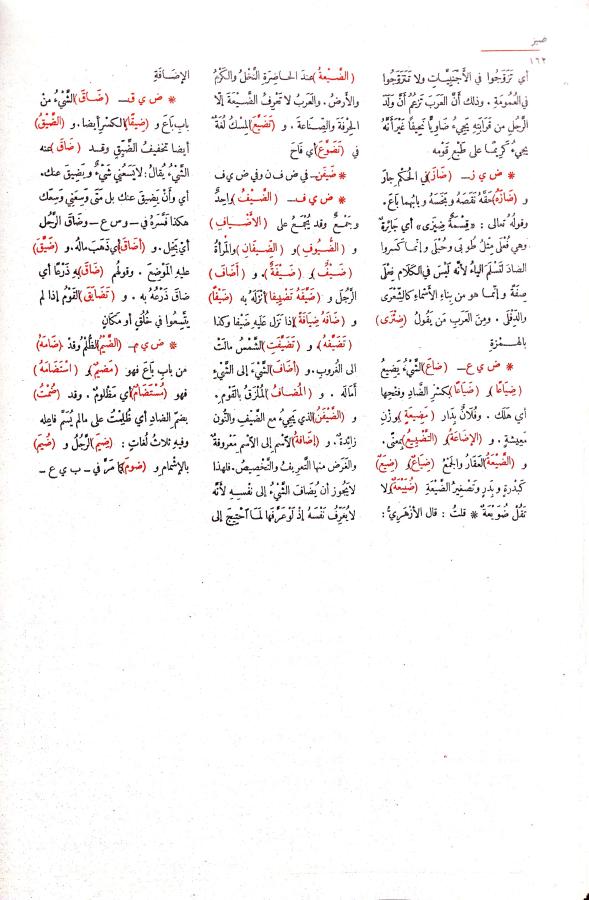 ضيز
١٦٢
أي تَزَوَّجُوا في الأَجْنَبِيَّاتِ ولا تَتَزَوَّجُوا
في العُمُومَةِ . وذلك أنَّ العَرَبَ تَزعُمُ أَنَّ وَلَدَ
الرَّجُلِ من قَرَابَتِهِ يَجِيءُ ضَاوِيًّا نَحِيفًا غَيْرَ أَنَّهُ
يَجِيءُ كَرِيمًا على طَبْعِ قَوْمِه
* ض ي ز ــ (ضَازَ) في الحُكْمِ جَارَ
و (ضَازَهُ) حَقَّهُ نَقَصَهُ وبَخَسَهُ وبابُهما بَاعَ .
وقولُهُ تعالى : «قِسْمَةٌ ضِيزَى» أي جَائِرَةٌ
وهي فُعْلَى مِثْلُ طُوبَى وحُبْلَى وإنما كَسَرُوا
الضادَ لِتَسْلَمَ اليَاءُ لأنه لَيْسَ في الكَلامِ فِعْلَى
صِفَةً وإنما هو من بِنَاءِ الأَسْمَاءِ كالشِّعْرَى
والدِّفْلَى . ومِنَ العَرَبِ مَن يَقُولُ (ضِئْزَى)
بالهَمْزة
* ض ي ع ــ (ضَاعَ) الشَّيْءُ يَضِيعُ
(ضِيَاعًا) و (ضَيَاعًا) بكسْرِ الضَّادِ وفتحِها
أي هَلَكَ . وفُلانٌ بِدَارِ (مَضِيعَةٍ) بوَزْنِ
مَعِيشَةٍ . و (الإضَاعَةُ) و (التَّضْيِيعُ) بمعنًى .
و (الضَّيْعَةُ) العَقَارُ والجَمْعُ (ضِيَاعٌ) و (ضِيَعٌ)
كَبَدْرَةٍ وبِدَرٍ وتَصْغِيرُ الضَّيْعَةِ (ضُيَيْعَةٌ) ولا
تَقُلْ ضُوَيْعَةٌ * قلتُ : قال الأزْهَرِيُّ :
(الضَّيْعَةُ) عندَ الحاضِرَةِ النَّخْلُ والكَرْمُ
والأرضُ . والعَرَبُ لا تَعْرِفُ الضَّيْعَةَ إلّا
الحِرْفَةَ والصِّنَاعَةَ . و (تَضَيَّعَ) المِسْكُ لُغَةٌ
في (تَضَوَّعَ) أي فَاحَ
* ضَيْفَن ــ في ض ف ن وفي ض ي ف
* ض ي ف ــ (الضَّيْفُ) واحِدٌ
وجَمْعٌ وقد يُجْمَعُ على (الأَضْيَافِ)
و (الضُّيُوفِ) و (الضِّيفَانِ) والمَرْأَةُ
(ضَيْفٌ) و (ضَيْفَةٌ) . و (أضَافَ)
الرَّجُلَ و (ضَيَّفَهُ تَضْيِيفًا) أنْزَلَهُ به (ضَيْفًا)
و (ضَافَهُ ضِيَافَةً) إذا نَزَلَ عليه ضَيْفا وكذا
(تَضَيَّفَهُ) . و (تَضَيَّفَتِ) الشَّمْسُ مَالَتْ
الى الغُروبِ . و (أضَافَ) الشَّيْءَ إلى الشَّيْءِ
أمَالَهُ . و (المُضَافُ) المُلْزَقُ بالقَوْمِ .
و (الضَّيْفَنُ) الذي يَجِيءُ مع الضَّيْفِ والنُّون
زائِدةٌ . و (إضَافَةُ) الاسْمِ إلى الاسْمِ مَعْرُوفَةٌ
والغَرَضُ منها التَّعْرِيفُ والتَّخْصِيصُ . فلهذا
لا يَجُوزُ أن يُضَافَ الشَّيْءُ إلى نَفْسِهِ لأنَّهُ
لا يُعَرِّفُ نَفْسَهُ إذْ لَوْ عَرَّفَها لمَا احْتِيجَ إلى
الإضَافَةِ
* ض ي ق ــ (ضَاقَ) الشَّيْءُ مِنْ
باب بَاعَ و (ضِيقًا) بالكسْرِ أيضا . و (الضَّيْقُ)
أيضا تخفيفُ الضَّيِّقِ وقد (ضَاقَ) عنه
الشَّيْءُ يُقالُ : لا يَسَعُنِي شَيْءٌ ويَضِيقَ عنك .
أي وأَنْ يَضيقَ عنك بل متَى وَسِعَنِي وَسِعَك
هكذا فَسَّرَهُ في ــ و س ع ــ وضَاقَ الرَّجُلُ
أي بَخِلَ . و (أضَاقَ) أي ذَهَبَ مَالُهُ . و (ضَيَّقَ)
عليه المَوْضِعَ . وقولُهم (ضَاقَ) به ذَرْعًا أي
ضاقَ ذَرْعُهُ به . و (تَضَايَقَ) القَوْمُ إذا لم
يتَّسِعُوا في خُلُقٍ أو مكانٍ
* ض ي م ــ (الضَّيْمُ) الظُّلْمُ وقد (ضَامَهُ)
من باب بَاعَ فهو (مَضِيمٌ) و (اسْتَضَامَهُ)
فهو (مُسْتَضَامٌ) أي مَظْلُومٌ . وقد (ضُمْتُ)
بضم الضاد أي ظُلِمْتُ على مالم يُسَمَّ فاعِله
وفيهِ ثَلاثُ لُغاتٍ : (ضِيمَ) الرَّجُلُ و (ضُيِمَ)
بالإشْمامِ و (ضُومَ) كما مَرَّ في ــ ب ي ع ــ